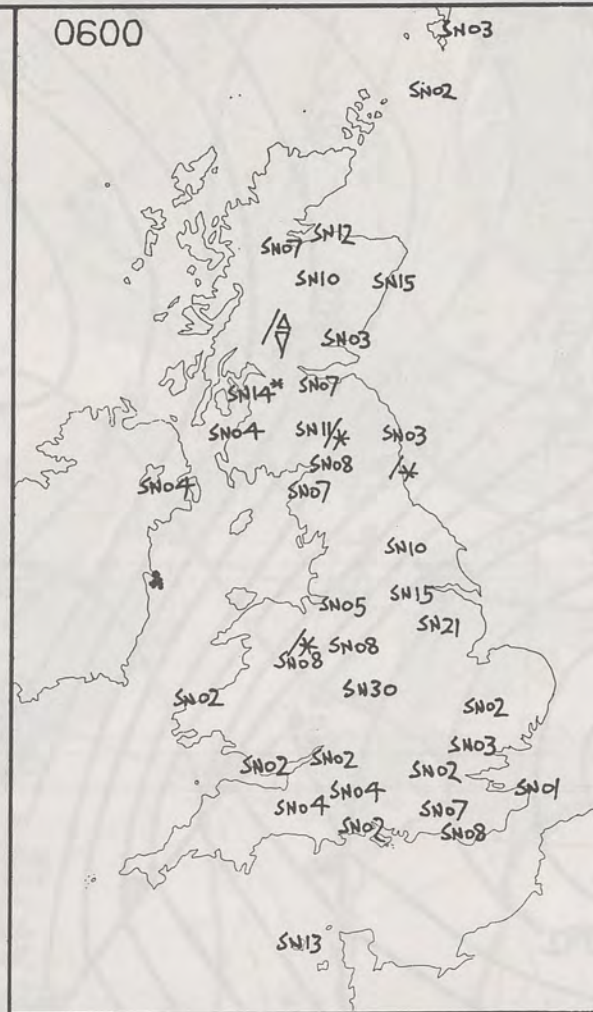 0600
SN03
SN02
SN12
SN07
SN10
SN15
SN03
SN07
SN14
SN04
SN11
SN03
SN08
SN04
SN07
SN10
SN15
SN05
SN21
SN08
SN08
SN30
SN02
SN02
SN03
SN02
SN02
SN02
SN01
SN04
SN04
SN07
SN02
SN08
SN13